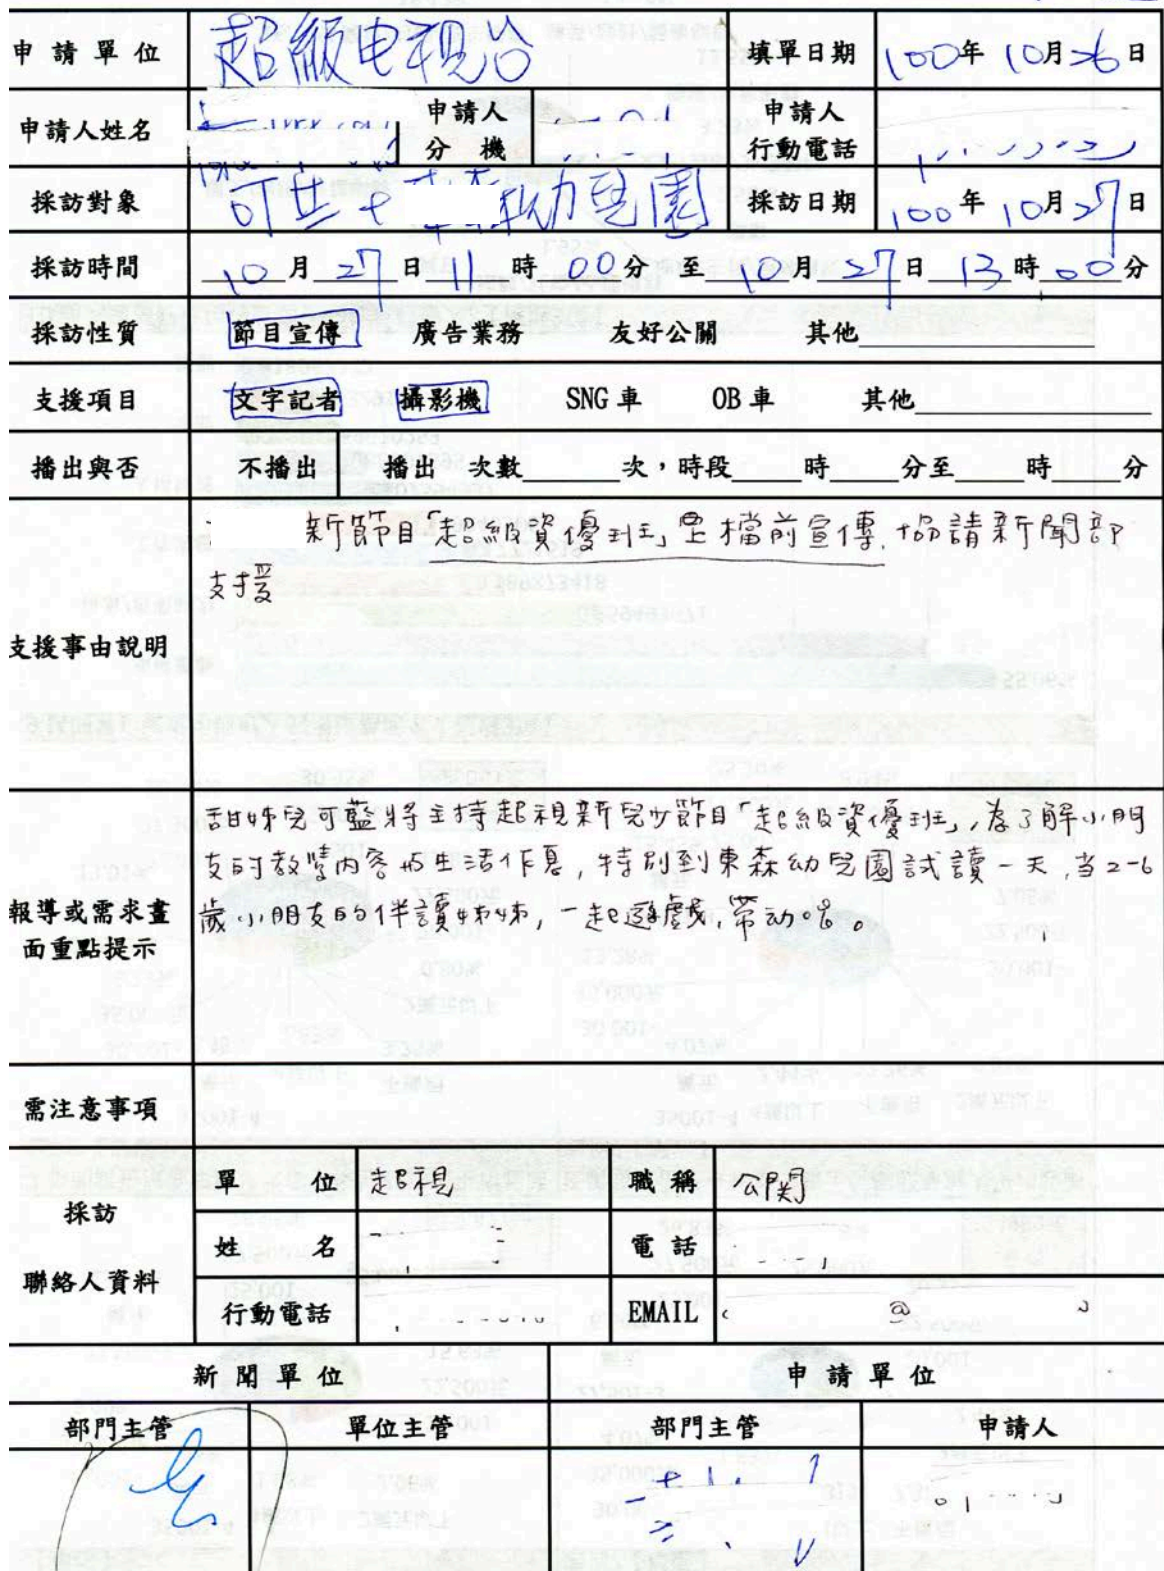 申請單位 超級电視台 填單日期 100年10月26日
申請人姓名 申請人分機 申請人行動電話
採訪對象 幼兒園 採訪日期 100年10月27日
採訪時間 10月27日11時00分至10月27日13時00分
採訪性質 節目宣傳 廣告業務 友好公關 其他
支援項目 文字記者 攝影機 SNG車 OB車 其他
播出與否 不播出 播出 次數 次,時段 時 分至 時 分
支援事由說明
新節目「超級資優班」上檔前宣傳,協請新聞部
支援
報導或需求畫面重點提示
甜姊兒可藍將主持超視新兒少節目「超級資優班」,為了解小朋
友的教學內容與生活作息,特別到東森幼兒園試讀一天,当2-6
歲小朋友的伴讀姊姊,一起遊戲,帶动唱。
需注意事項
採訪聯絡人資料
單位 超視 職稱 公関
姓名 電話
行動電話 EMAIL @
新聞單位 申請單位
部門主管 單位主管 部門主管 申請人